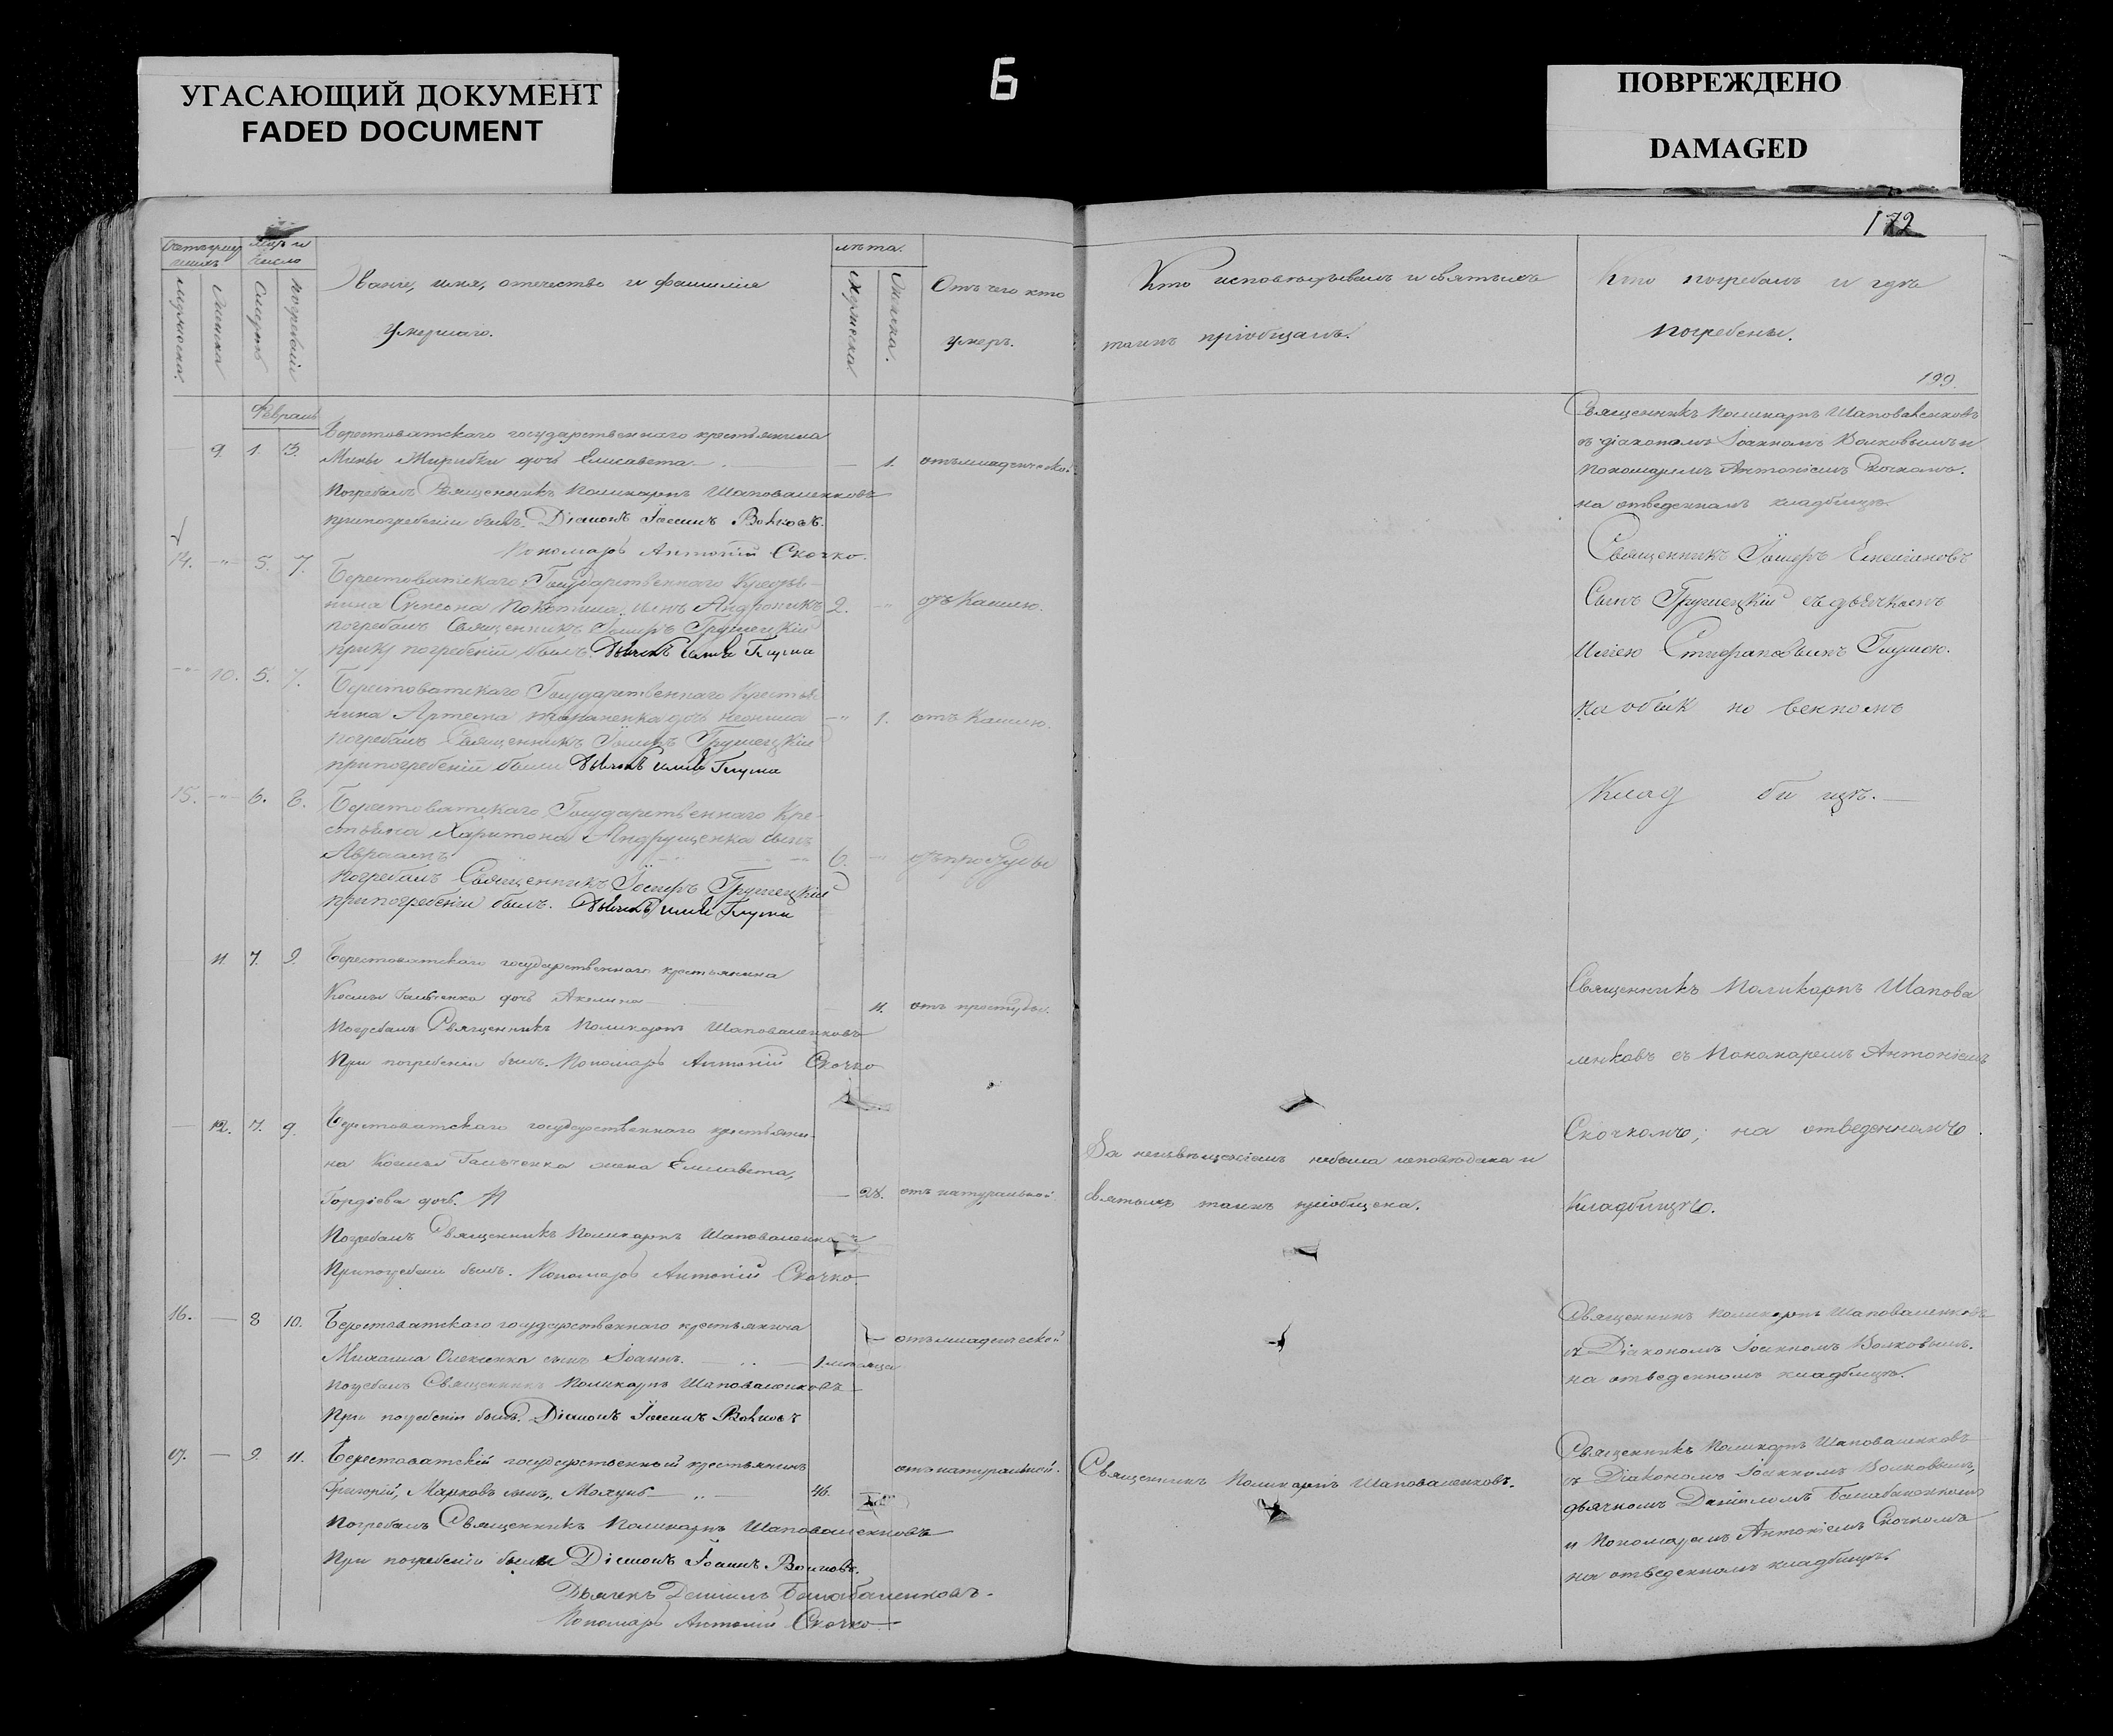 УГАСАЮЩИЙ ДОКУМЕНТ
FADED DOCUMENT
6
ПОВРЕЖДЕНО
DAMAGED
172
Мѣц и
число
лѣта.
Званіе, имя, отчество и фамилія
умершаго.
Мужеска
Женска.
Отъ чего кто
умеръ.
Кто исповѣдывалъ и святыхъ
таинъ пріобщалъ.
Кто погребалъ и гдѣ
погребены.
199.
Февраль
— 9. 1. 3.
Берестоватскаго государственнаго крестьянина
дочь Елисавета — 1.
Погребалъ Священникъ Поликарпъ Шаповаленковъ
при погребеніи бывъ. Діаконъ Іоаннъ Волковъ.
Пономарь Антоній Скочко.
Священникъ Поликарпъ Шаповаленковъ
съ діакономъ Іоанномъ Волковымъ и
пономаремъ Антоніемъ Скочкомъ.
на отведенномъ кладбищѣ.
14. —"— 5. 7.
Берестоватскаго Государственнаго
нина Андроникъ 2. отъ Кашлю.
погребалъ Священникъ Грушецкій
погребеніи былъ. Дьячекъ Глуша
Священникъ
Сынъ Грушецкій съ дьячкомъ
Иліею Стефановымъ Глушею.
на но венномъ
Клад би щѣ. —
—"— 10. 5. 7.
Берестоватскаго Государственнаго Крестья
нина Артема дочь —" 1. отъ Кашлю.
погребалъ Священникъ Грушецкій
при погребеніи были Дьячекъ Глуша
15. —"— 6. 8.
Берестоватскаго Государственнаго Кре-
стьянина Харитона Андрущенка сынъ
Авраамъ 6. — отъ простуды
погребалъ Священникъ Грушецкій
при погребеніи былъ. Дьячекъ Глуша
— 11 7. 9.
Берестоватскаго государственнаго крестьянина
Космы дочь Акелина — отъ простуды.
Погребалъ Священникъ Поликарпъ Шаповаленковъ
При погребеніи былъ. Пономарь Антоній Скочко
Священникъ Поликарпъ Шапова
ленковъ съ Пономаремъ Антоніемъ
Скочкомъ; на отведенномъ
Кладбищѣ.
— 12. 7. 9.
Берестоватскаго государственнаго крестьяни-
на Космы Гальченка жена Елисавета,
Гордіева дочь. — 28. отъ натуральной
Погребалъ Священникъ Поликарпъ
При погребеніи былъ. Пономарь Антоній Скочко.
За неизвѣщеніемъ небыла исповѣдана и
святыхъ таинъ пріобщена.
16. — 8 10.
Берестоватскаго государственнаго крестьянина
Михаила сынъ Іоаннъ. — 1. мѣсяца
отъ младенческой
погребалъ Священникъ Поликарпъ Шаповаленковъ
При погребеніи былъ. Діаконъ Іоаннъ Волковъ
Священникъ Поликарпъ Шаповаленковъ
съ Діакономъ Іоанномъ Волковымъ.
на отведенномъ кладбищѣ.
17. — 9. 11.
Берестоватскій государственный крестьянинъ
Григорій, Марковъ сынъ, — 46.
отъ натуральной.
Погребалъ Священникъ Поликарпъ Шаповаленковъ
При погребеніи были Діаконъ Іоаннъ Волковъ.
Дьячекъ Даніилъ Балабаненковъ.
Пономарь Антоній Скочко
Священникъ Поликарпъ Шаповаленковъ.
Священникъ Поликарпъ Шаповаленковъ
съ Діакономъ Іоанномъ Волковымъ,
дьячкомъ Даніиломъ
и Пономаремъ Антоніемъ Скочкомъ
на отведенномъ кладбищѣ.